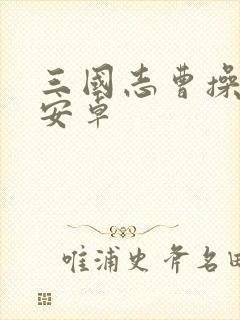 三國志曹操
安卓
唯浦史斧名田